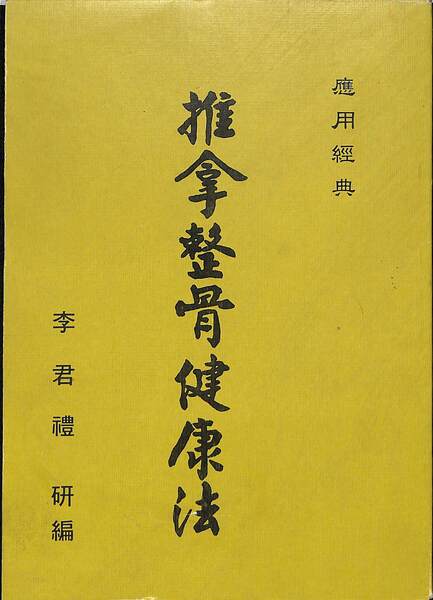 應用經典
推拿整骨健康法
李君禮 研編